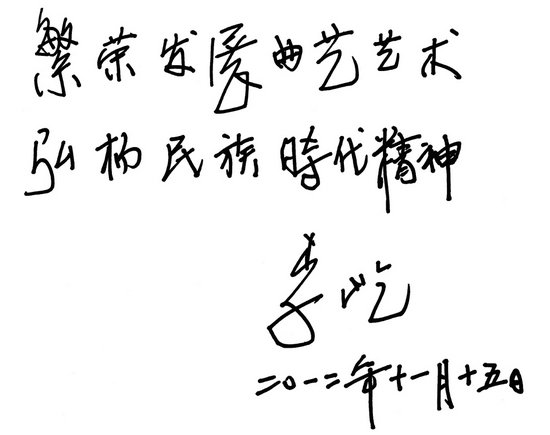 繁荣发展曲艺艺术
弘扬民族時代精神
李屹
二〇一二年十一月十五日